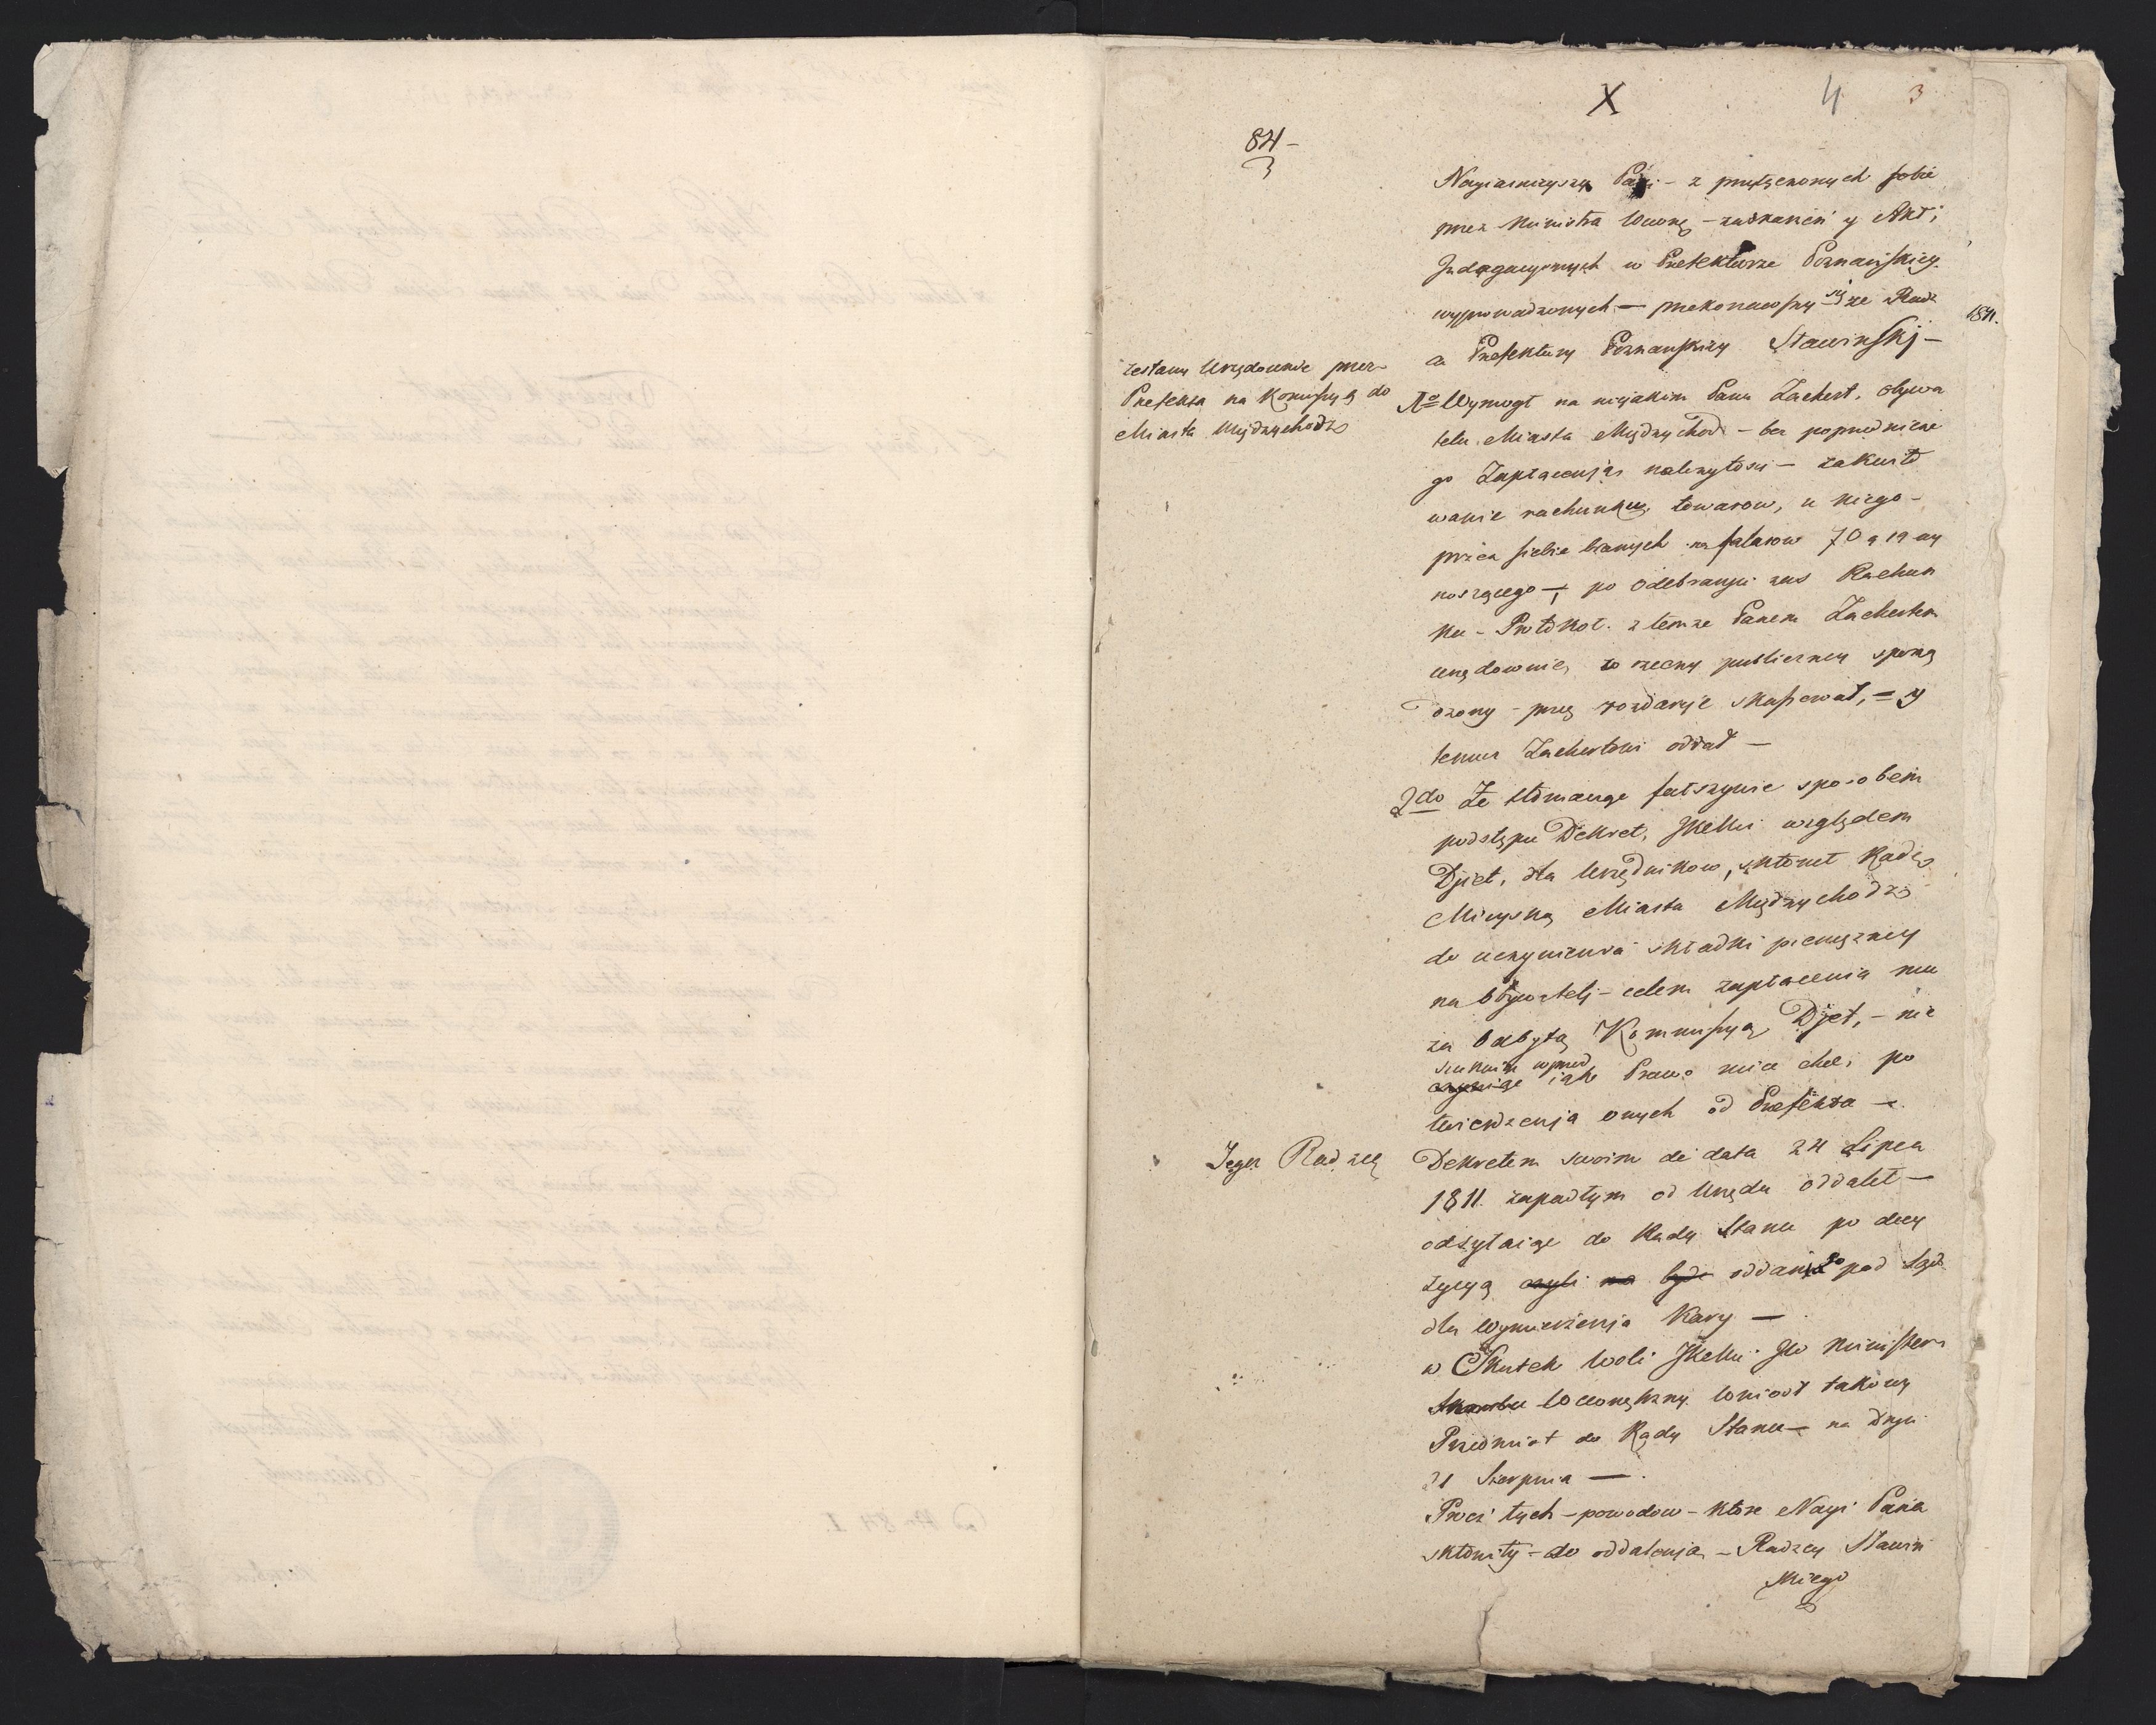 X 4 3
84 -
Nayiasnieyszy Pan - z przyłączonych sobie
przez Ministra Woyny - zaskarżeń y Akt,
Jndagacyonnych w Prefekturze Poznańskiey
wyprowadzonych - przekonawszy się że Radz
1811.
ca Prefektury Poznanskiey Stawinskj -
zesłany Urzędownie przez
Prefekta na Kommissyą do
Miasta Międzychodz
1o Wymogł na niejakim Panu Zachert, obywa
telu Miasta Międzychod - bez poprzednicze
go Zapłacenja należytosci - zakwito
wanie rachunku, towarow, u niego -
przez siebie branych na talarow 70 g 19 wy
noszącego -, po odebranju zas Rachun
ku - Protokoł z temze Panem Zachertem
urzędownie, w rzeczy publiczney sporzą
dzony - przez rozdarcje skassował, - y
temu Zachertowi oddał -
2do Ze tłomacząc fałszywie sposobem
podstępu Dekret, JKMci względem
Djet, dla Urzędnikow, skłonił Radę
Mieyską Miasta Międzychodz
do uczynienia składki pienięzney
na Obywatelj - celem zapłacenia mu
za odbytą Kommissyą Djet, - nie
szukaiąc wprzod
iak Prawo mieć chce, po
twierdzenja onych od Prefekta -
Jegoz Radzcę
Dekretem swoim de data 24 Lipca
1811 zapadłym od Urzędu oddalił -
odsyłaiąc do Rady Stanu po decy
zycyą czyli ma bydz oddany pod Sąd
dla Wymierzenja Kary -
w Skutek Woli JKMci JW Minister
Skarbu Wewnętrzny Wniosł takowy
Przedmiot do Rady Stanu - na dnju
21 Sierpnia -
Procz tych - powodow - ktore Nayj Pana
skłoniły - do oddalenja - Radzcy Stawin
skiego